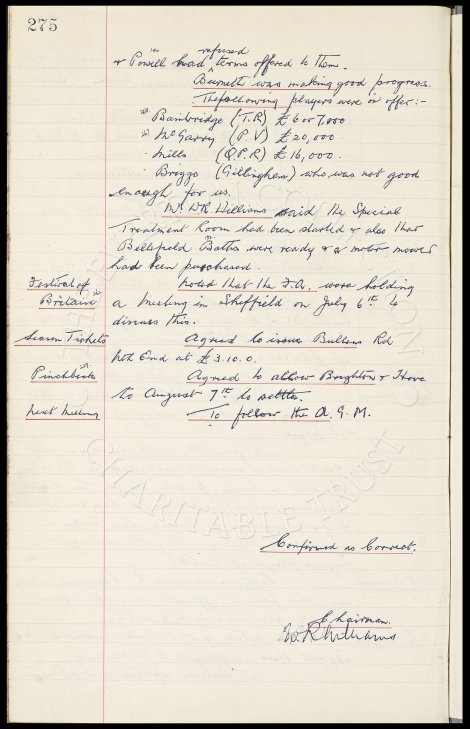 275
refused
& Powell had terms offered to them.
Burnett was making good progress.
The following players were on offer:-
Bambridge (T.R) £6 or 7,000
McGarry (P.V) £20,000
Mills (Q.P.R) £16,000.
Briggs (Gillingham) who was not good
enough for us.
Mr W.R. Williams said the Special
Treatment Room had been started & also that
Bellefield Baths were ready & a motor mower
had been purchased.
Festival of Britain noted that the F.A. were holding
a meeting in Sheffield on July 6th to
discuss this.
Season Tickets Agreed to issue Bullens Rd
Not End at £3.10.0.
Pinchbeck Agreed to allow Brighton & Hove
to August 7th to settle.
Next Meeting To follow the A.G.M.
CHARITABLE TRUST
Confirmed as Correct.
Chairman
R Williams